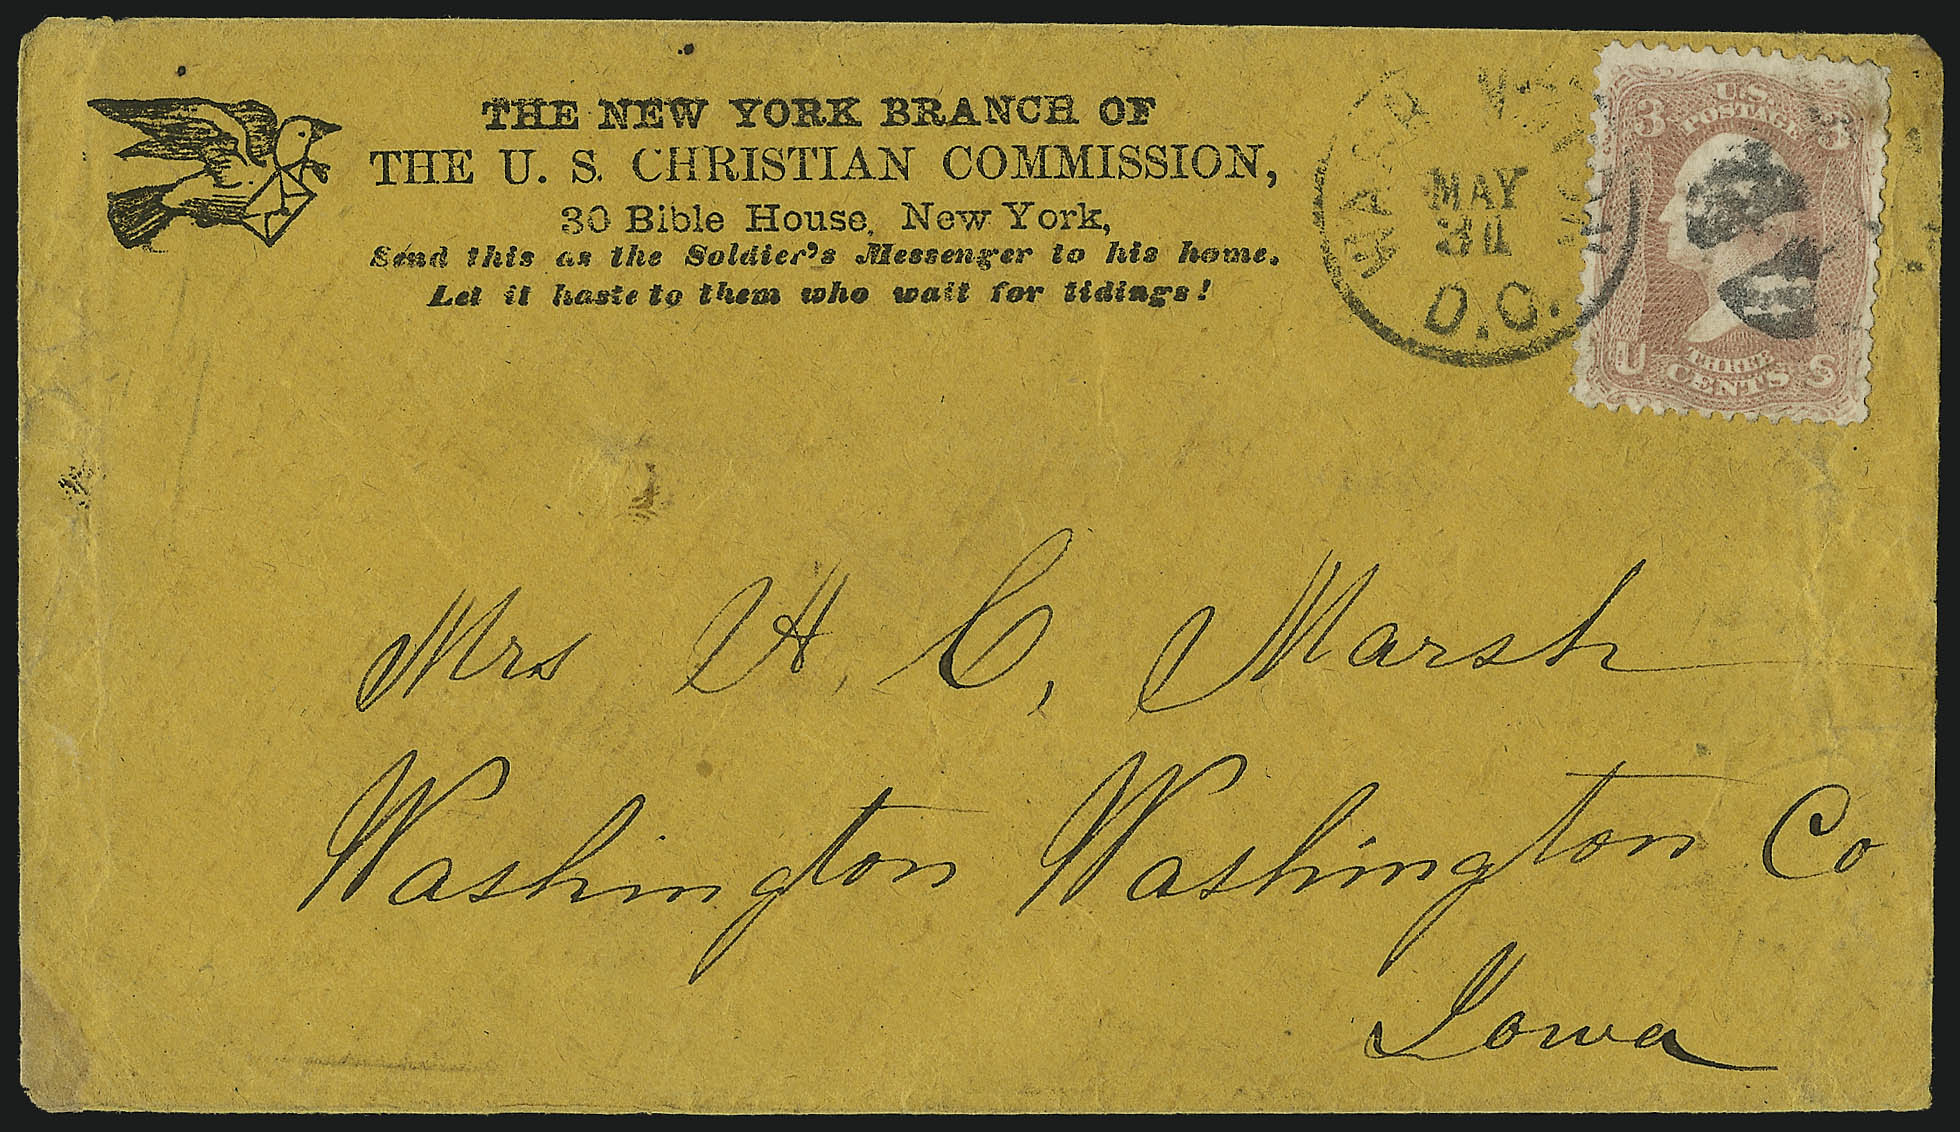 THE NEW YORK BRANCH OF
THE U. S. CHRISTIAN COMMISSION,
30 Bible House, New York,
Send this as the Soldier's Messenger to his home.
Let it haste to them who wait for tidings!
MAY
31
D.C.
U.S.
POSTAGE
3 3
U THREE S
CENTS
Mrs H. C, Marsh
Washington Washington Co
Iowa